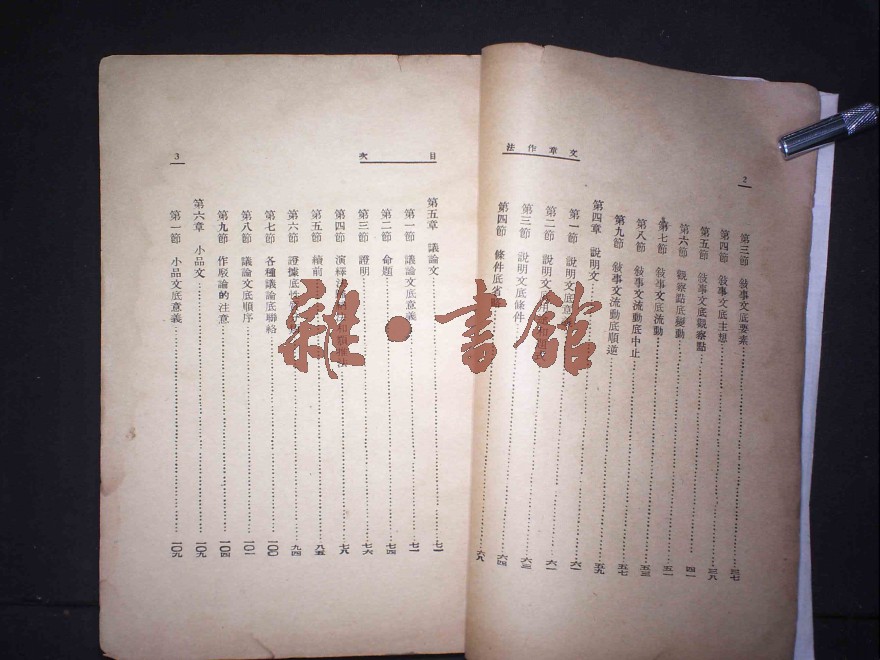 2
文章作法
第三節 敍事文底要素 三七
第四節 敍事文底主想 三八
第五節 敍事文底觀察點 四一
第六節 觀察點底變動
第七節 敍事文底流動 五一
第八節 敍事文流動底中止 五三
第九節 敍事文流動底順逆 五七
第四章 說明文 五九
第一節 說明文底意 六一
第二節 說明文 六一
第三節 說明文底條件 六三
第四節 條件底省 六九
目次
3
第五章 議論文 七一
第一節 議論文底意義 七一
第二節 命題 七四
第三節 證明 七六
第四節 演繹法 和類推法 七八
第五節 續前 八五
第六節 證據底性 九四
第七節 各種議論底聯絡 一〇〇
第八節 議論文底順序 一〇一
第九節 作駁論的注意 一〇四
第六章 小品文 一〇九
第一節 小品文底意義 一〇九
雜·書館